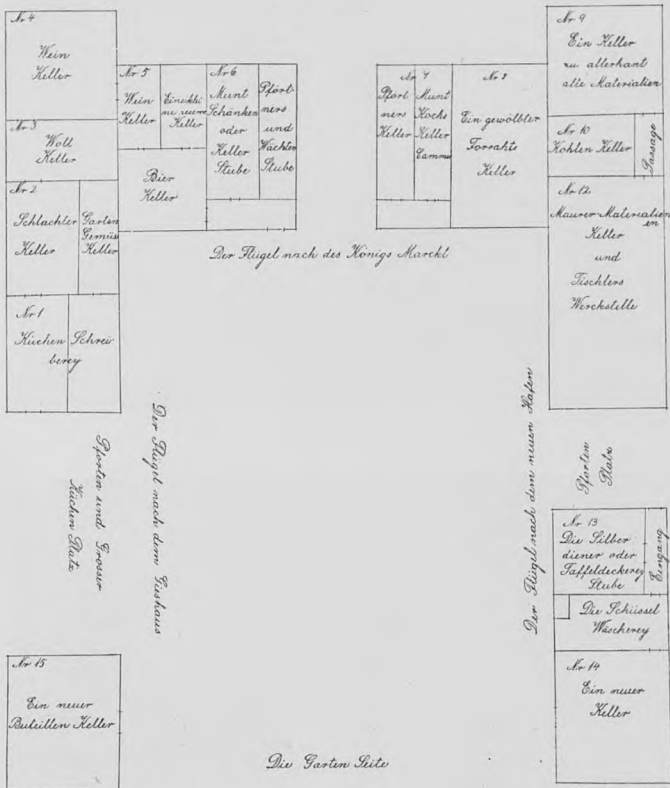 Nr 4
Wein
Keller
Nr 3
Woll
Keller
Nr 2
Schlachter
Keller
Garten
Gemüs
Keller
Nr 1
Küchen Schrei-
berey
Nr 5
Wein
Keller
Keller
Bier
Keller
Nr 6
Munt
Schänken
oder
Keller
Stube
Pfört-
ners
und
Wächter
Stube
Nr 7
Pfört
ners
Keller
Munt
Kochs
Keller
Cammer
Nr 8
Ein gewölbter
Forrahts
Keller
Der Flügel nach des Königs Marckt
Nr 9
Ein Keller
zu allerhant
alte Materialien
Nr 10
Kohlen Keller
Passage
Nr 12
Maurer Materialien
Keller
und
Tischlers
Werckstelle
Pforten und Grosser
Küchen Platz
Der Flügel nach dem Gieshaus
Der Flügel nach dem neuen Hafen
Pforten
Platz
Nr 13
Die Silber
diener oder
Taffeldeckerey
Stube
Eingang
Die Schüssel
Wäscherey
Nr 14
Ein neuer
Keller
Nr 15
Ein neuer
Buteillen Keller
Die Garten Seite